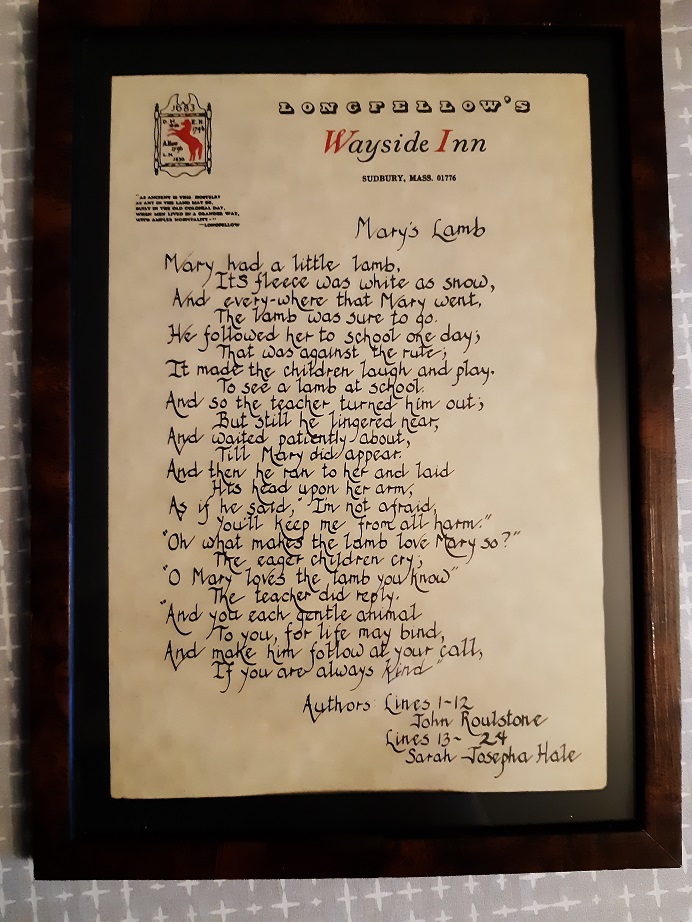 1683
D. H.
E. H.
1746
A. Howe
1796
L. H.
1830
LONGFELLOW'S
Wayside Inn
SUDBURY, MASS. 01776
"AS ANCIENT IS THIS HOSTELRY
AS ANY IN THE LAND MAY BE,
BUILT IN THE OLD COLONIAL DAY,
WHEN MEN LIVED IN A GRANDER WAY,
WITH AMPLER HOSPITALITY."
—LONGFELLOW
Mary's Lamb
Mary had a little lamb,
Its fleece was white as snow,
And every-where that Mary went,
The lamb was sure to go.
He followed her to school one day;
That was against the rule;
It made the children laugh and play.
To see a lamb at school.
And so the teacher turned him out;
But still he lingered near,
And waited patiently about,
Till Mary did appear.
And then he ran to her and laid
His head upon her arm,
As if he said, "I'm not afraid,
You'll keep me from all harm."
"Oh what makes the lamb love Mary so?"
The eager children cry;
"O Mary loves the lamb you know"
The teacher did reply.
"And you each gentle animal
To you, for life may bind,
And make him follow at your call,
If you are always kind"
Authors: Lines 1-12
John Roulstone
Lines 13- 24
Sarah Josepha Hale